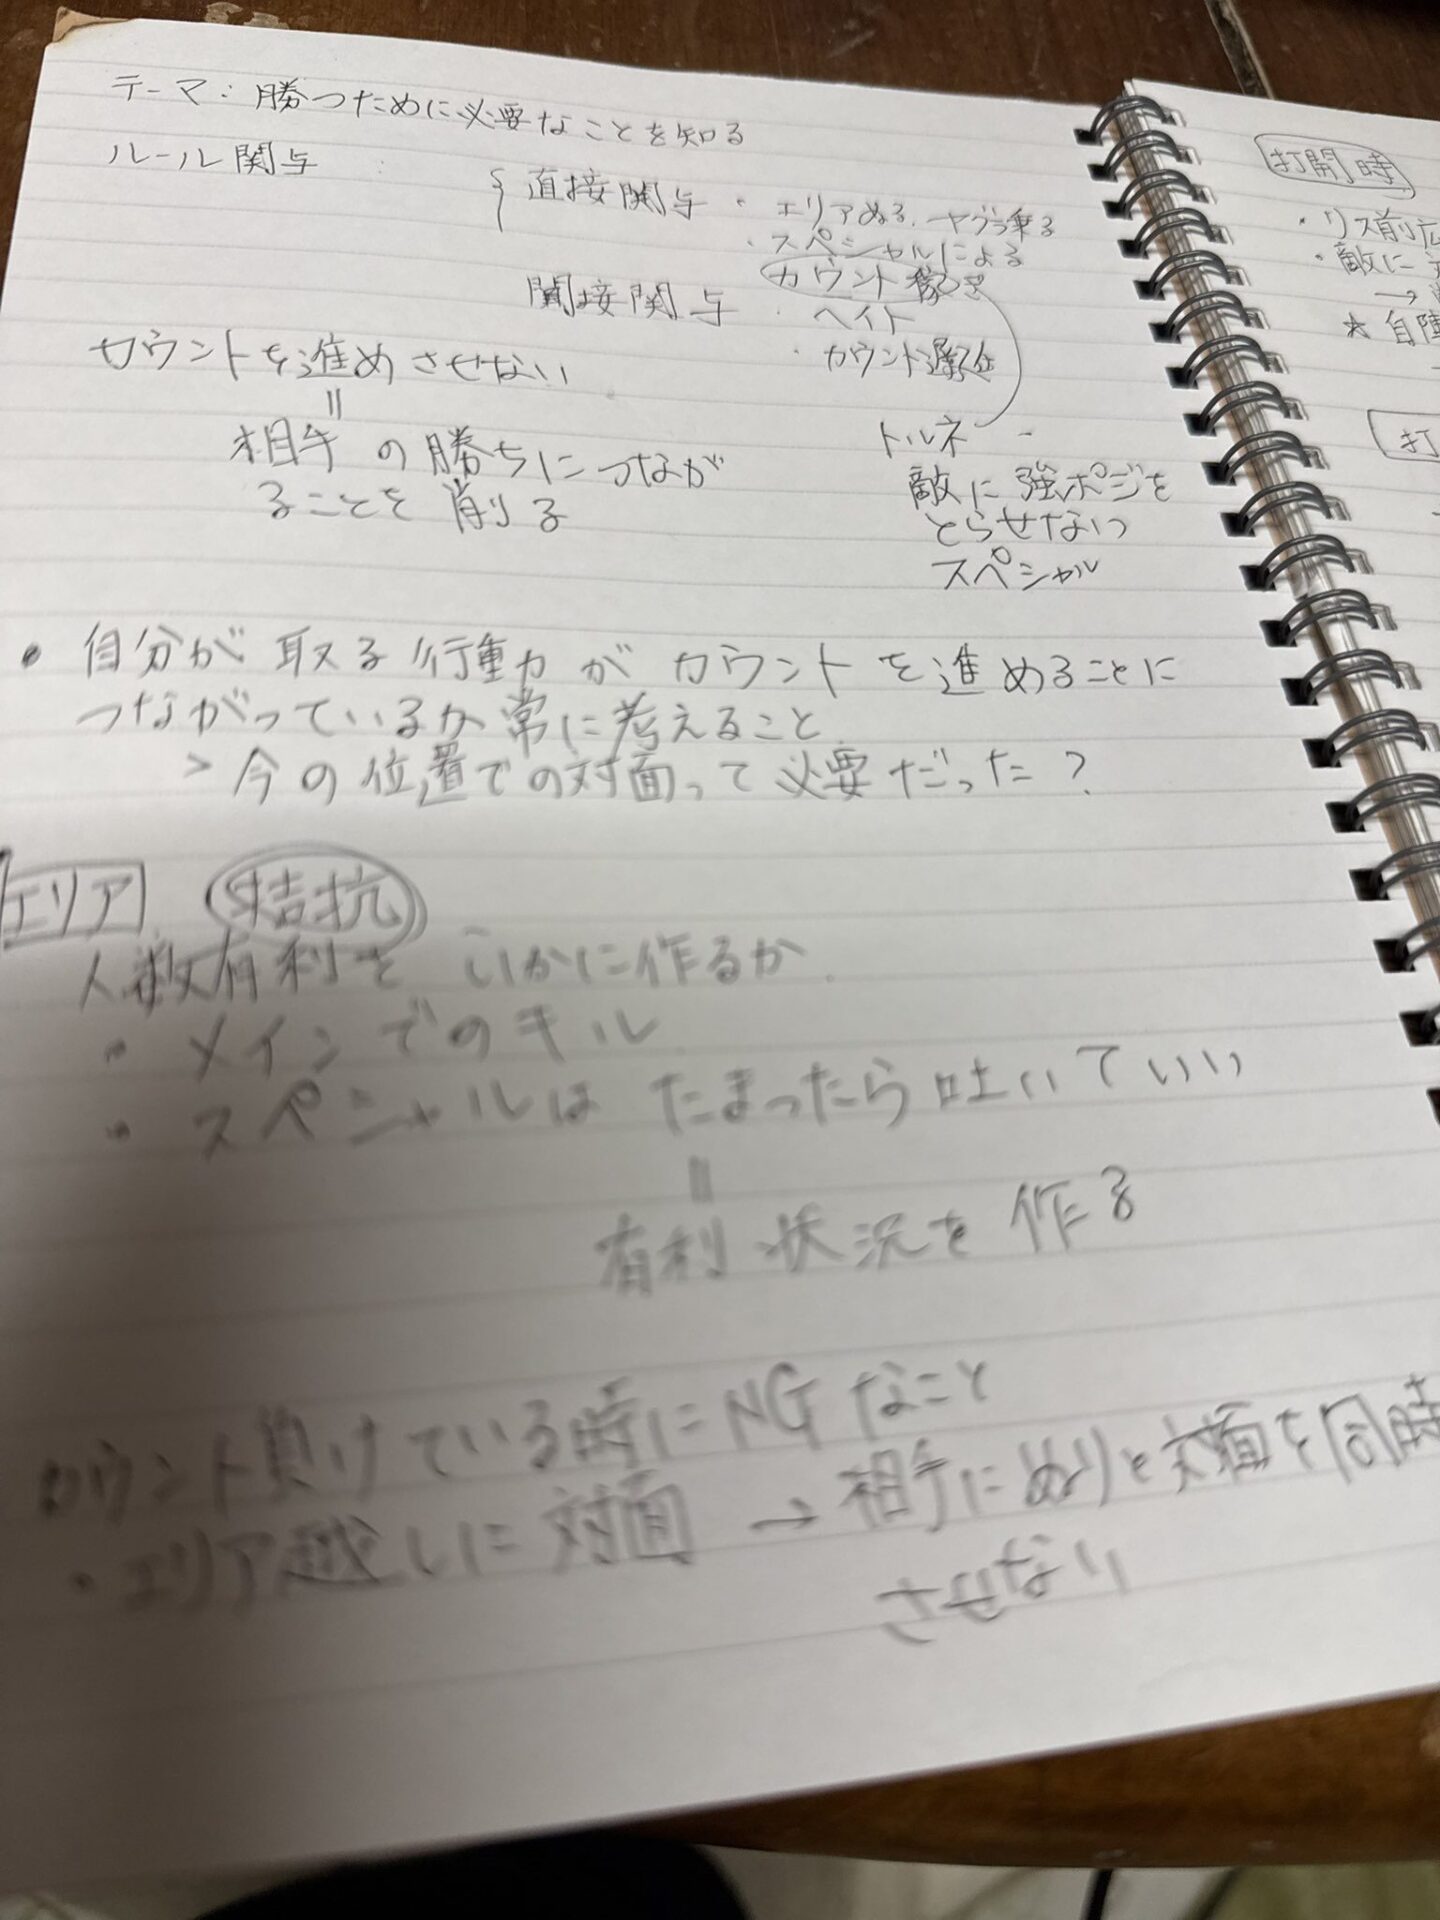 テーマ：勝つために必要なことを知る
ルール関与
直接関与 ・エリアぬる、ヤグラ乗る
・スペシャルによる
カウント稼ぎ
間接関与 ・ヘイト
・カウント遅延
カウントを進めさせない
＝
相手の勝ちにつなが
ることを削る
トルネ
敵に強ポジを
とらせない
スペシャル
・自分が取る行動がカウントを進めることに
つながっているか常に考えること
> 今の位置での対面って必要だった？
エリア 拮抗
人数有利をいかに作るか
・メインでのキル
・スペシャルはたまったら吐いていい
＝
有利状況を作る
カウント負けている時にNGなこと
・エリア越しに対面 → 相手にぬりと対面を同時
させない
打開時
・リス前
・敵に
→
★自陣
打